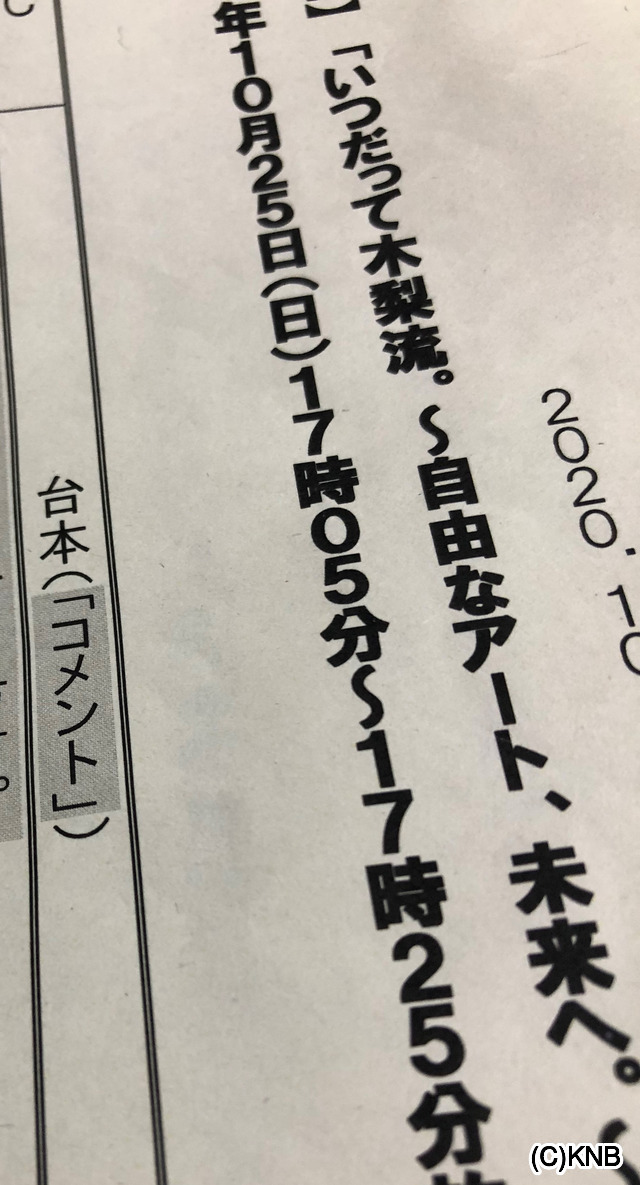 2020.10
】「いつだって木梨流。～自由なアート、未来へ。～
年10月25日(日)17時05分～17時25分
台本(「コメント」)
(C)KNB